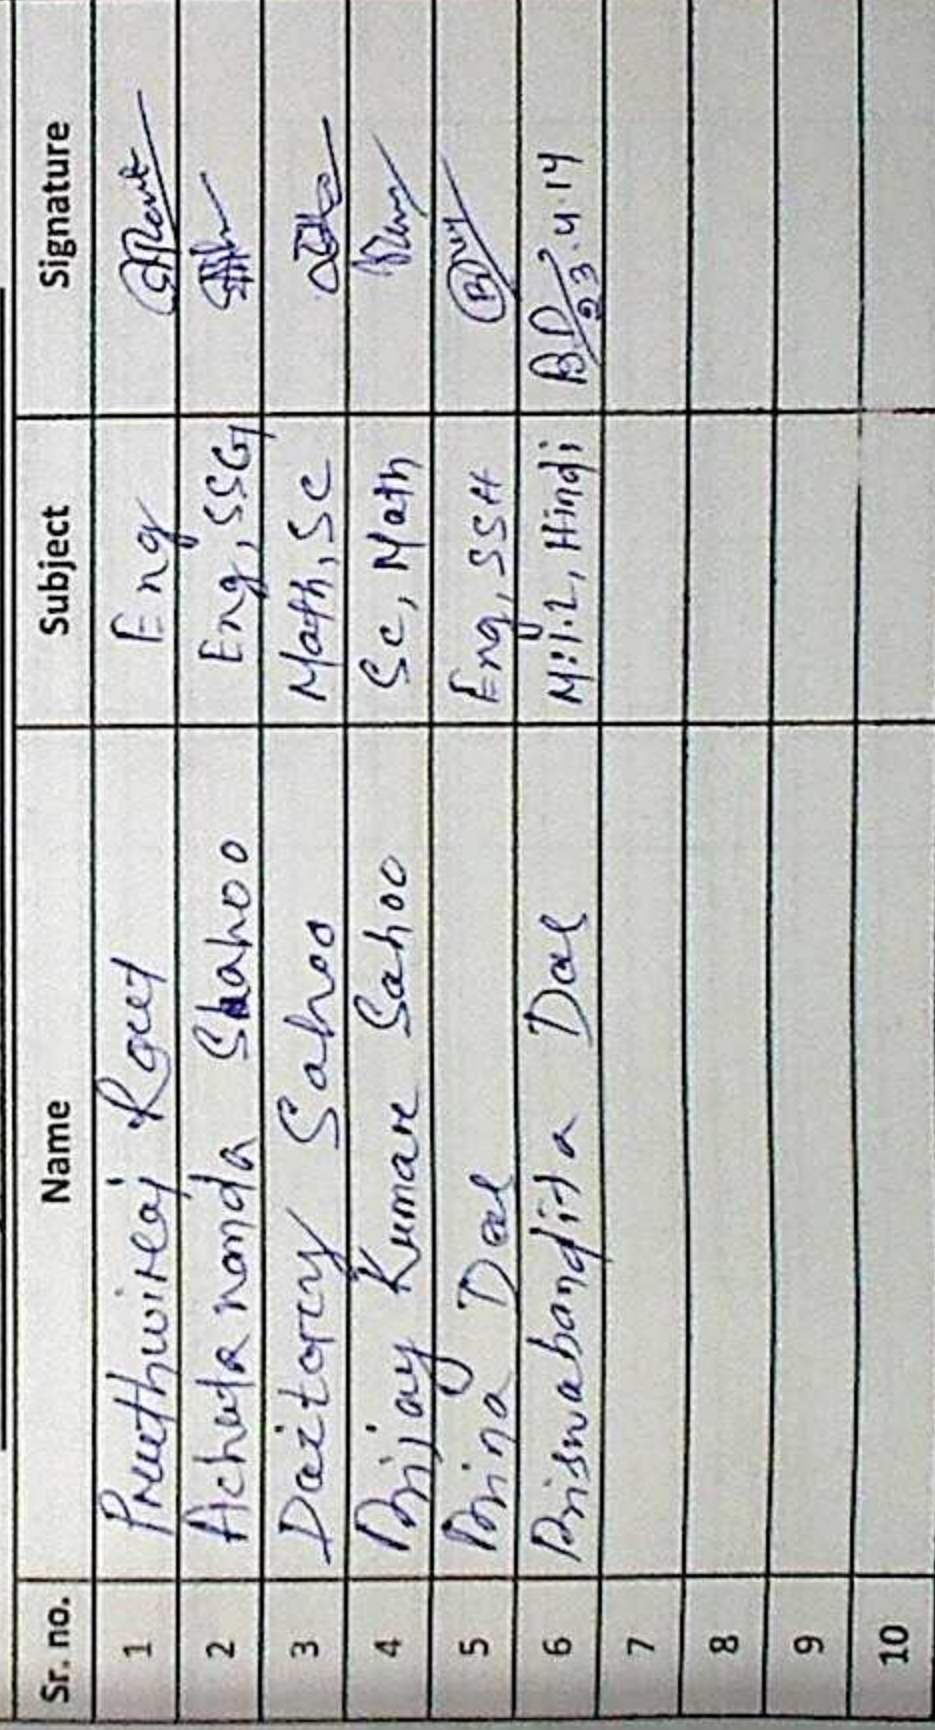 Sr. no. Name Subject Signature
1 Pruthwiraj Rout Eng
2 Achutananda Sahoo Eng, SSG
3 Daitary Sahoo Math, SC
4 Bijay Kumar Sahoo Sc, Math
5 Bina Das Eng, SSH
6 Biswabandita Das M.I.L, Hindi BD 23.4.14
7
8
9
10